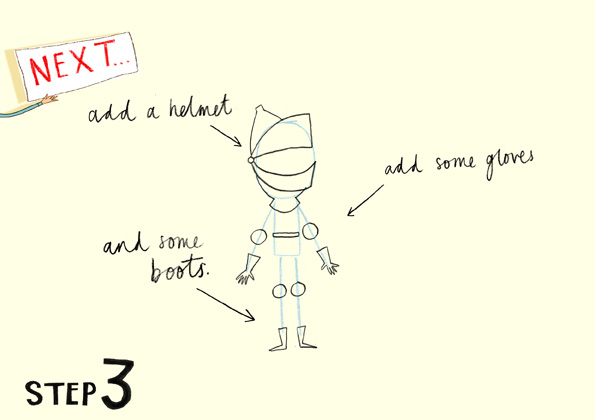 NEXT...
add a helmet
add some gloves
and some
boots.
STEP 3